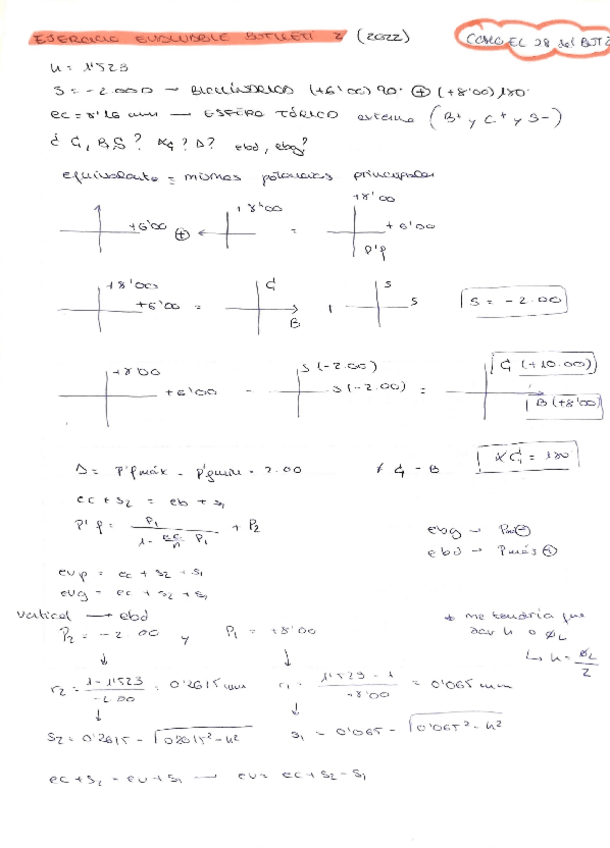 EJERCICIO EVALUABLE BUTLLETÍ 2 (2022)
COMO EL 28 del BUT 2
n = 1'523
S = -2.00D → BICILÍNDRICO (+6'00) 90º ⊕ (+8'00) 180º
ec = 8'16 mm → ESFERO TÓRICO externo (B+ y C+ y S-)
¿ C, B, S? αC? Δ? ebd, ebg?
equivalente = mismas potencias principales
+6'00 ⊕ +8'00 = +8'00 +6'00
P'p
+8'00 +6'00 = C B S S
S = -2.00
+8'00 +6'00 - S (-2.00) S (-2.00) = C (+10.00) B (+8'00)
Δ = P'fmáx - = 2.00
C - B
αC = 180
ec + s2 = eb + s1
P'p = P1 / 1 - ec/n P1 + P2
ebg →
ebd → Pmás
evp = ec + s2 - s1
evg = ec + s2 + s1
vertical → ebd
P2 = -2.00 y P1 = +8'00
* me tendría que
dar h o ØL
↳ h = ØL/2
r2 = 1-1'523 / -2.00 = 0'2615 mm
r1 = 1'523 - 1 / +8'00 = 0'065 mm
s2 = 0'2615 - √0'2615² - h²
s1 = 0'065 - √0'065² - h²
ec + s2 = ev + s1 → ev = ec + s2 - s1